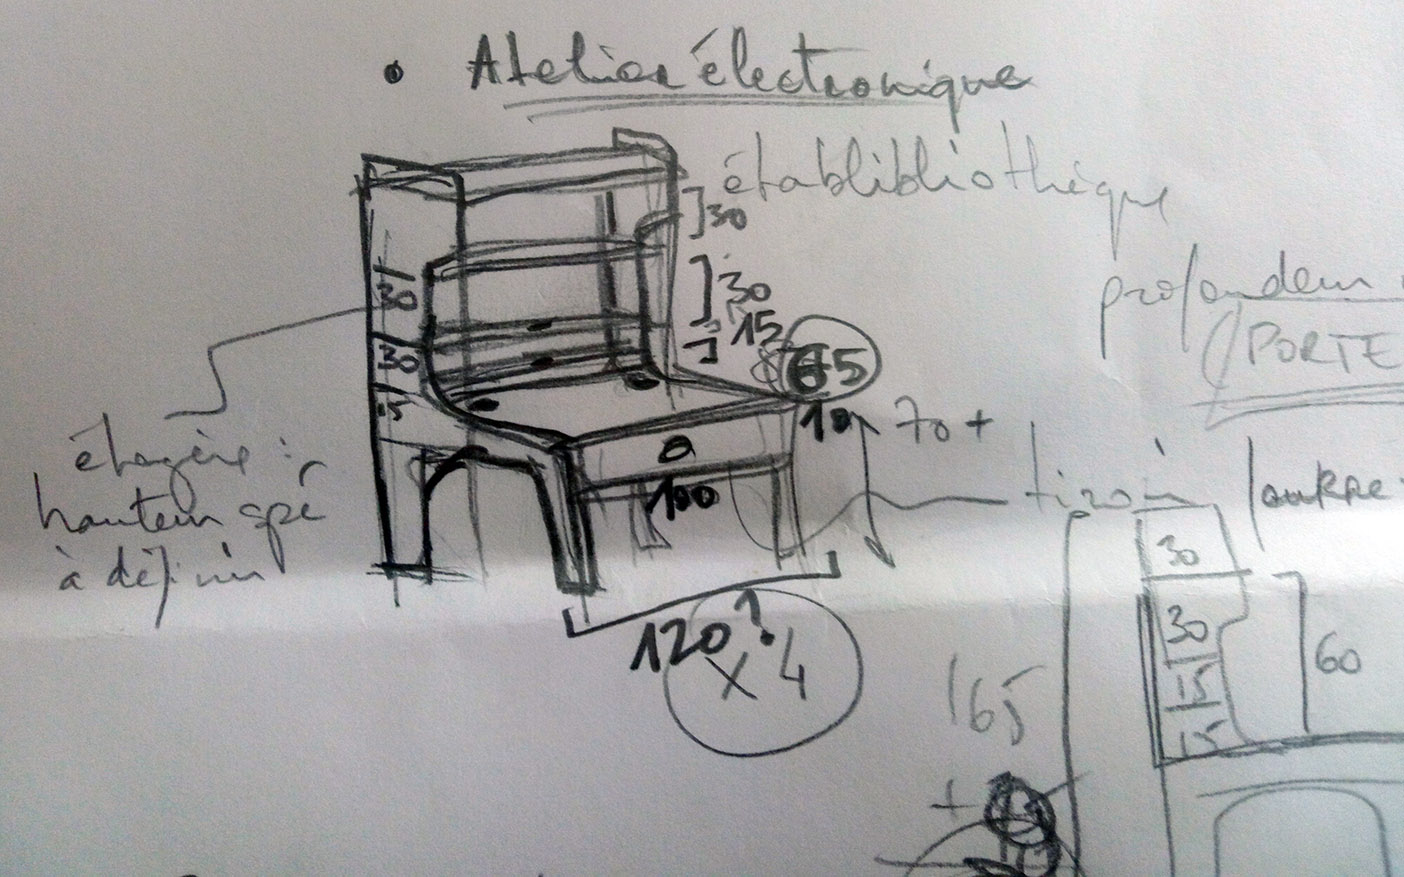 • Atelier électronique
établibliothèque
]30
]30
15
65
10
70 +
tiroir
profondeur
PORTE
30
30
15
étagère :
hauteur spé
à définir
100
120 ?
x 4
30
30
15
15
60
165
+